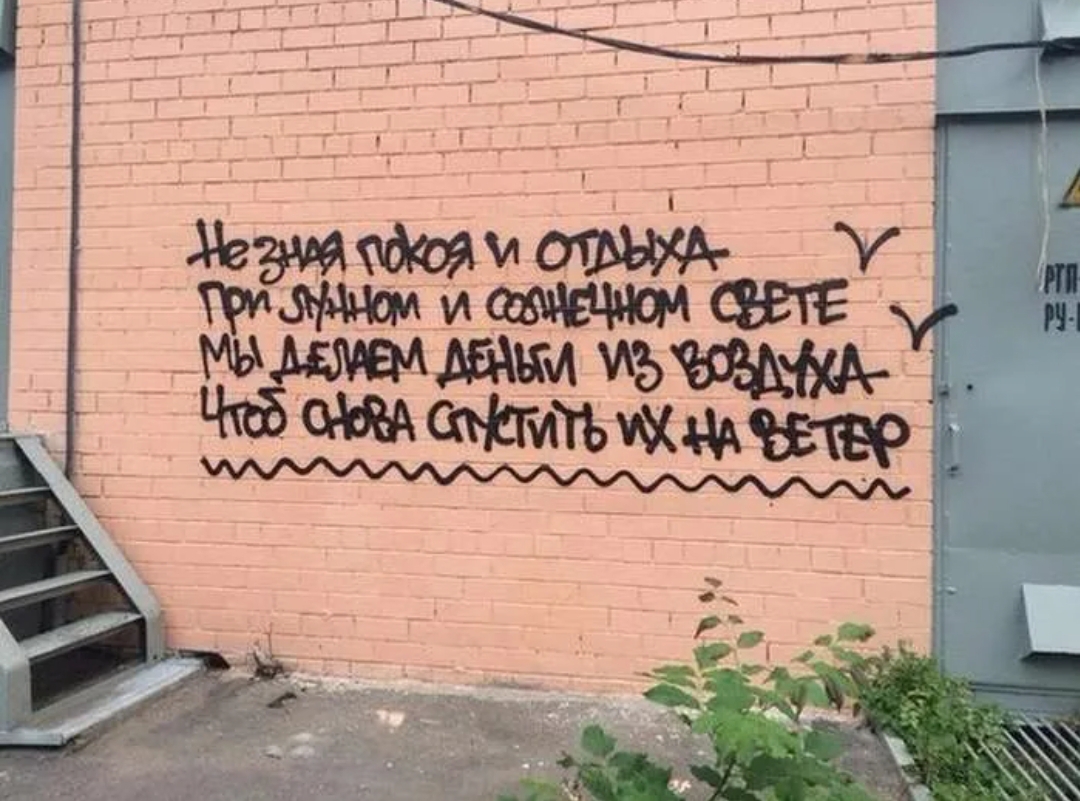 Не зная покоя и отдыха
При лунном и солнечном свете
Мы делаем деньги из воздуха
Чтоб снова спустить их на ветер
РТП
РУ-